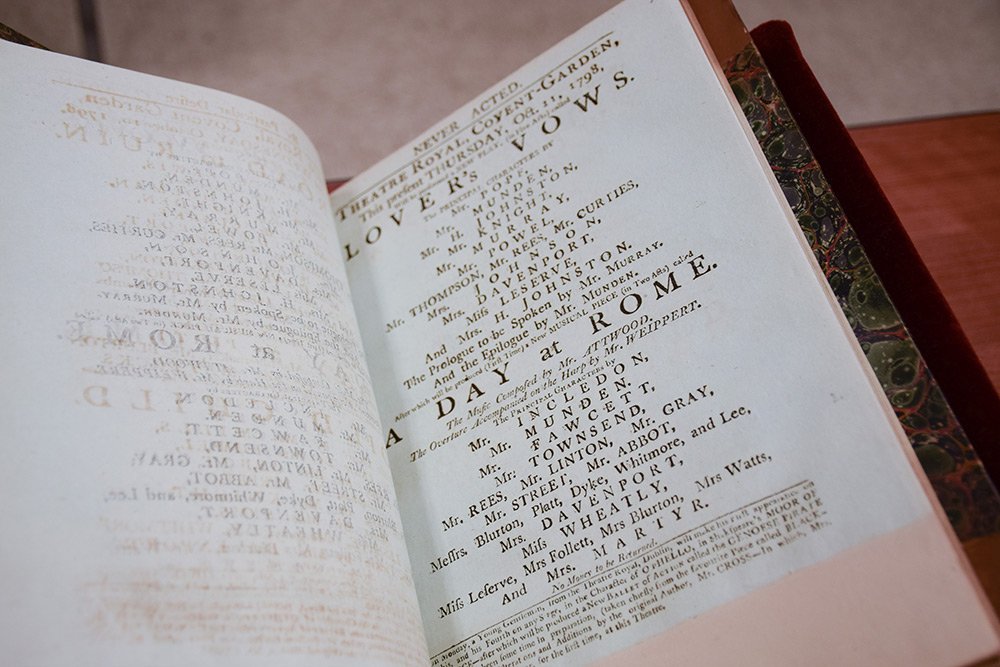 NEVER ACTED.
THEATRE ROYAL, COVENT-GARDEN,
This present THURSDAY, Oct. 11, 1798,
LOVER's VOWS.
The PRINCIPAL CHARACTERS by
Mr. POPE,
Mr. MUNDEN,
Mr. H. JOHNSTON,
Mr. KNIGHT,
Mr. MURRAY,
Mr. POWEL,
Mr. THOMPSON, Mr. REES, Mr. CURTIES,
Mrs. JOHNSON,
Mrs. DAVENPORT,
Miss LESERVE,
And Mrs. H. JOHNSTON.
The Prologue to be Spoken by Mr. MURRAY.
And the Epilogue by Mr. MUNDEN.
After which will be produced (First Time) a New MUSICAL PIECE (in Two Acts) called
A DAY at ROME.
The Music Composed by Mr. ATTWOOD,
The Overture Accompanied on the Harp by Mr. WEIPPERT.
The PRINCIPAL CHARACTERS by
Mr. INCLEDON,
Mr. MUNDEN,
Mr. FAWCETT,
Mr. TOWNSEND,
Mr. REES, Mr. LINTON, Mr. GRAY,
Mr. STREET, Mr. ABBOT,
Messrs. Blurton, Platt, Dyke, Whitmore, and Lee,
Mrs. DAVENPORT,
Miss WHEATLY,
Miss Leserve, Mrs Follett, Mrs Blurton, Mrs Watts,
And Mrs. MARTYR.
No Money to be Returned.
On Monday, a Young Gentleman, from the Theatre Royal, Dublin, will make his first appearance
and his Fourth on any Stage, in the Character of OTHELLO, in Shakspeare's MOOR OF
after which will be produced a New BALLET of ACTION called the GENOESE PIRATE
been some time in preparation, (taken chiefly from the favourite Piece called BLACK
and Additions by the original Author, Mr. CROSS—In which, Mrs.
for the first time, at this Theatre.